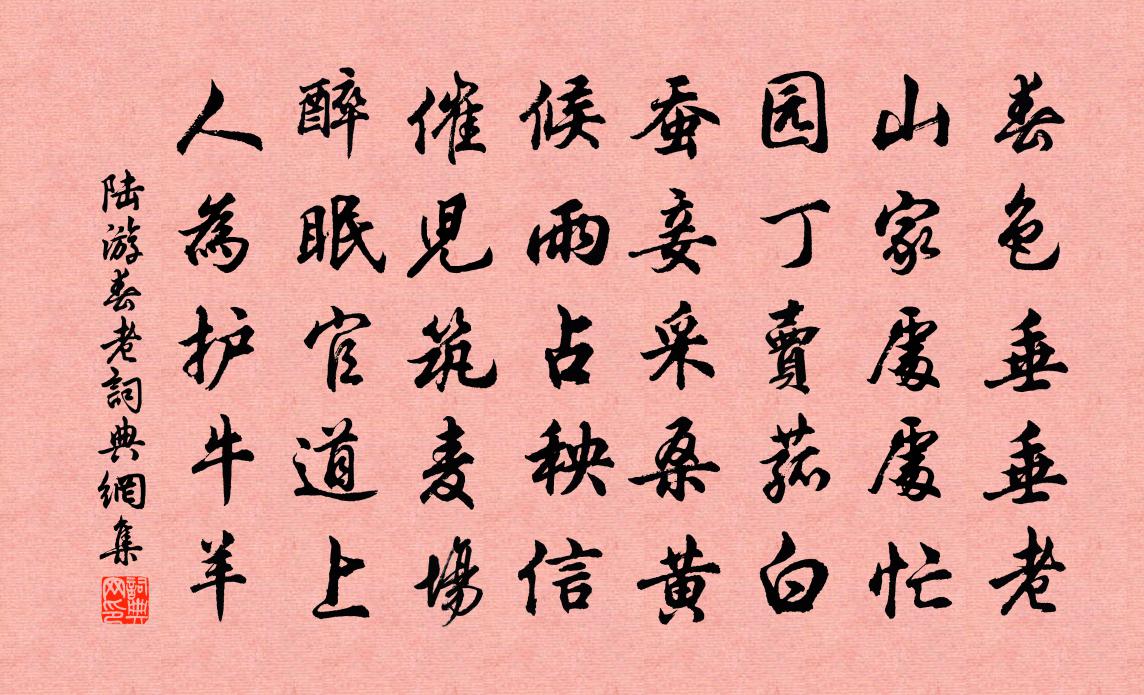 春色垂垂老
山家處處忙
园丁賣菰白
蚕妾采桑黄
候雨占秧信
催兒筑麦場
醉眠官道上
人為护牛羊
陆游春老詞典網集
詞典网印